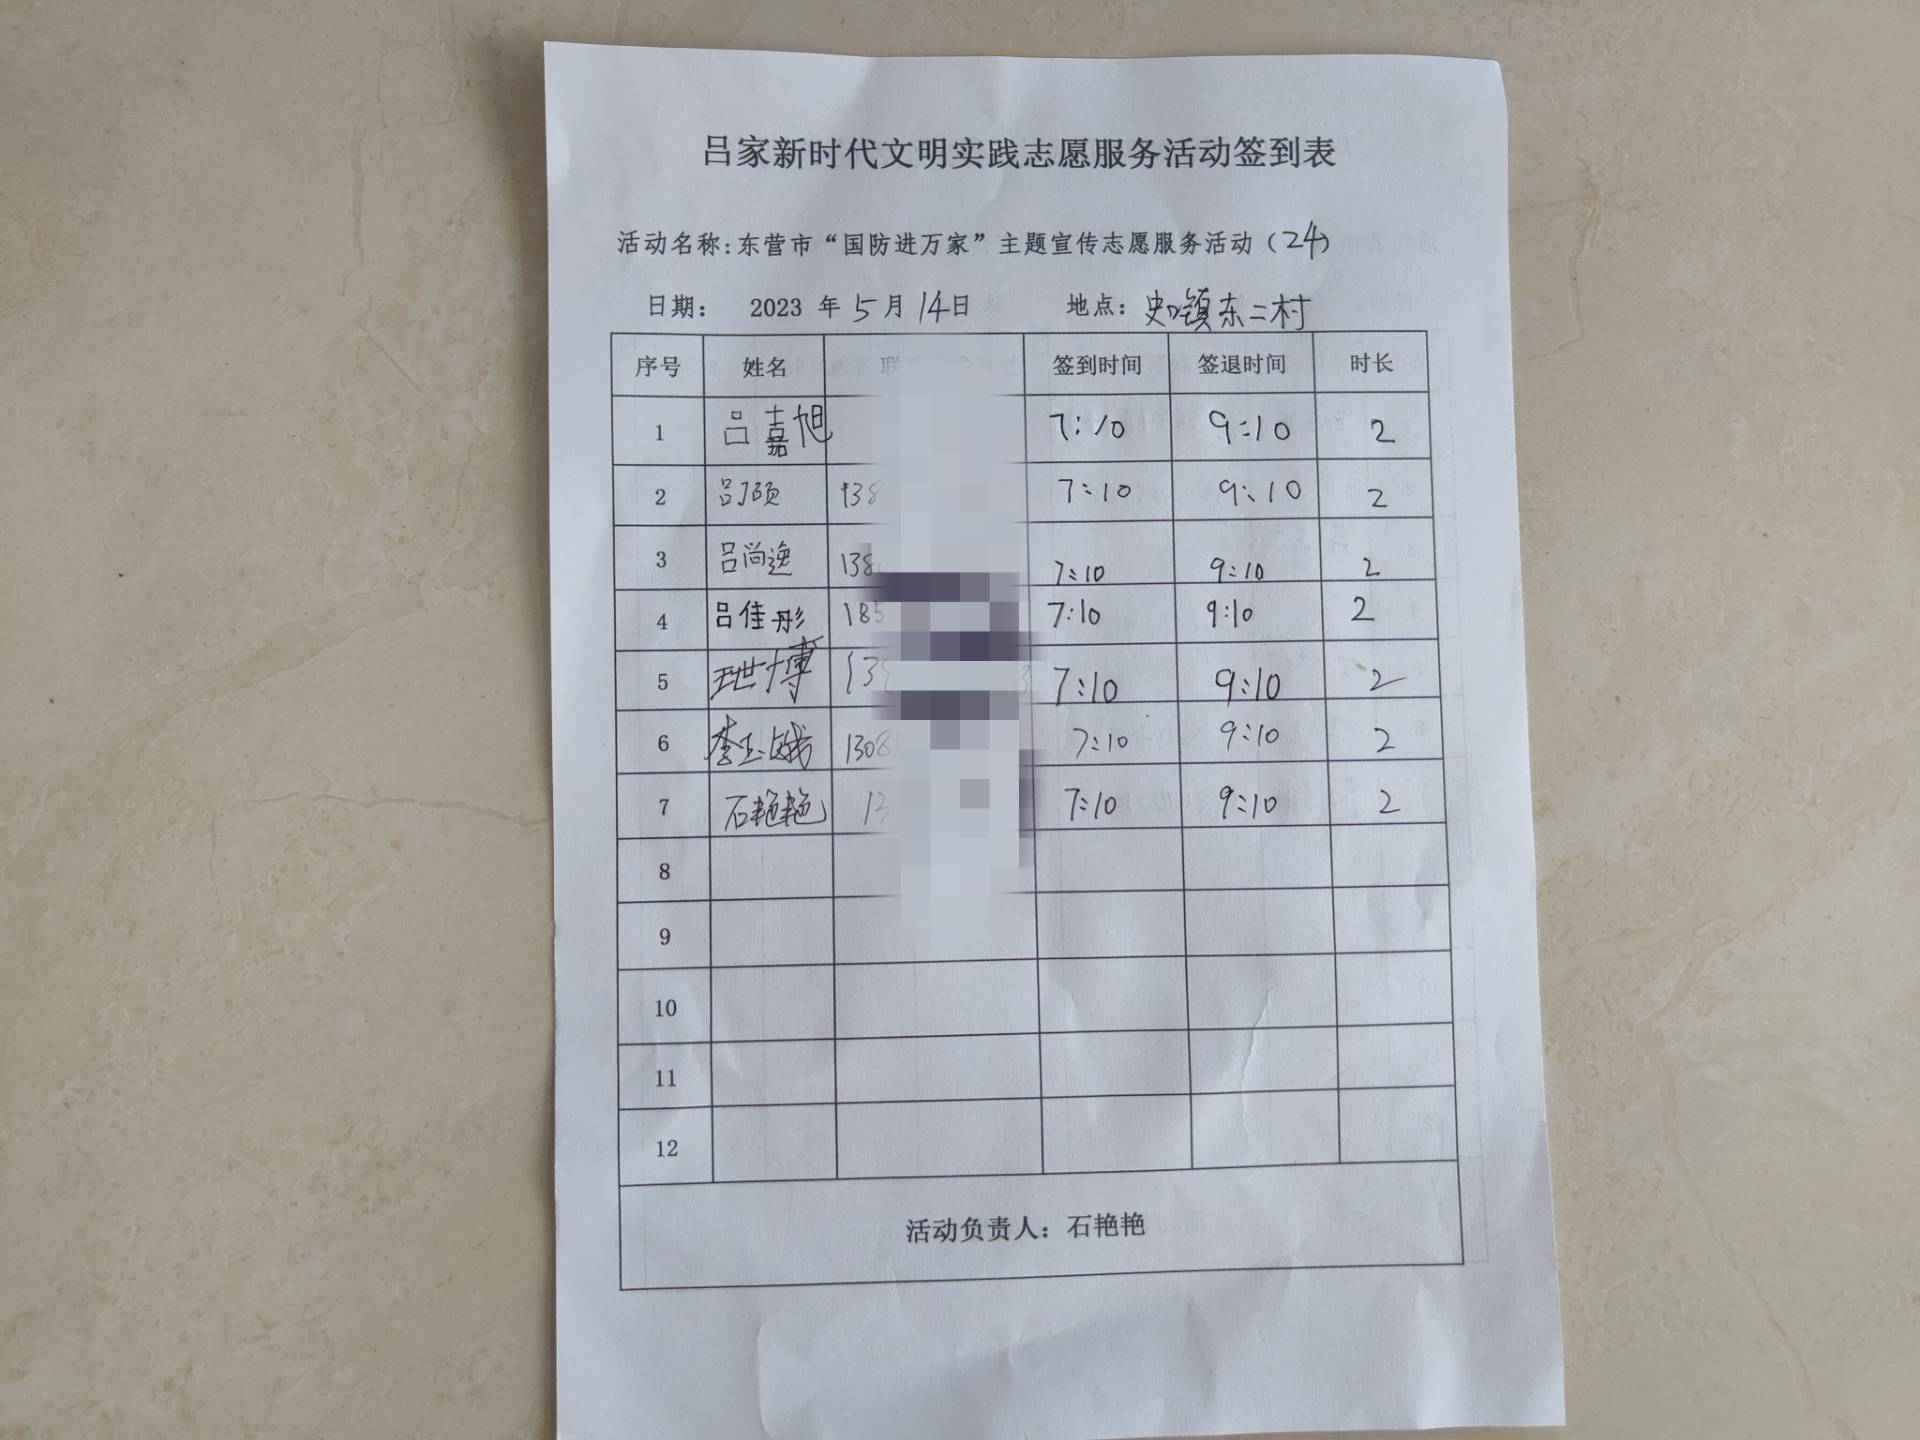 吕家新时代文明实践志愿服务活动签到表
活动名称:东营市“国防进万家”主题宣传志愿服务活动(24)
日期: 2023 年 5 月 14日 地点: 史口镇东二村
序号 姓名 联 签到时间 签退时间 时长
1 吕嘉旭 7:10 9:10 2
2 吕硕 138 7:10 9:10 2
3 吕尚逸 138 7:10 9:10 2
4 吕佳彤 185 7:10 9:10 2
5 王世博 138 3 7:10 9:10 2
6 李玉娥 1308 7:10 9:10 2
7 石艳艳 13 7:10 9:10 2
8
9
10
11
12
活动负责人: 石艳艳